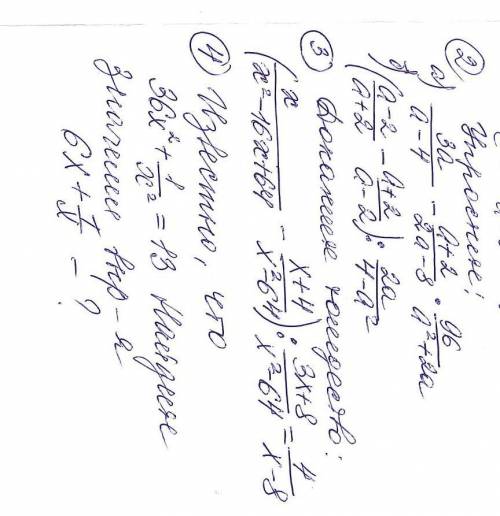 ② Упростите:
а) 3a/(a-4) - (a+2)/(2a-8) · 96/(a²+2a)
б) ((a-2)/(a+2) - (a+2)/(a-2)) : 2a/(4-a²)
③ Докажите тождество:
(x/(x²-16x+64) - (x+4)/(x²-64)) : (3x+8)/(x²-64) = 4/(x-8)
④ Известно, что
36x² + 1/x² = 13 Найдите
значения выр-я
6x + 1/x = ?